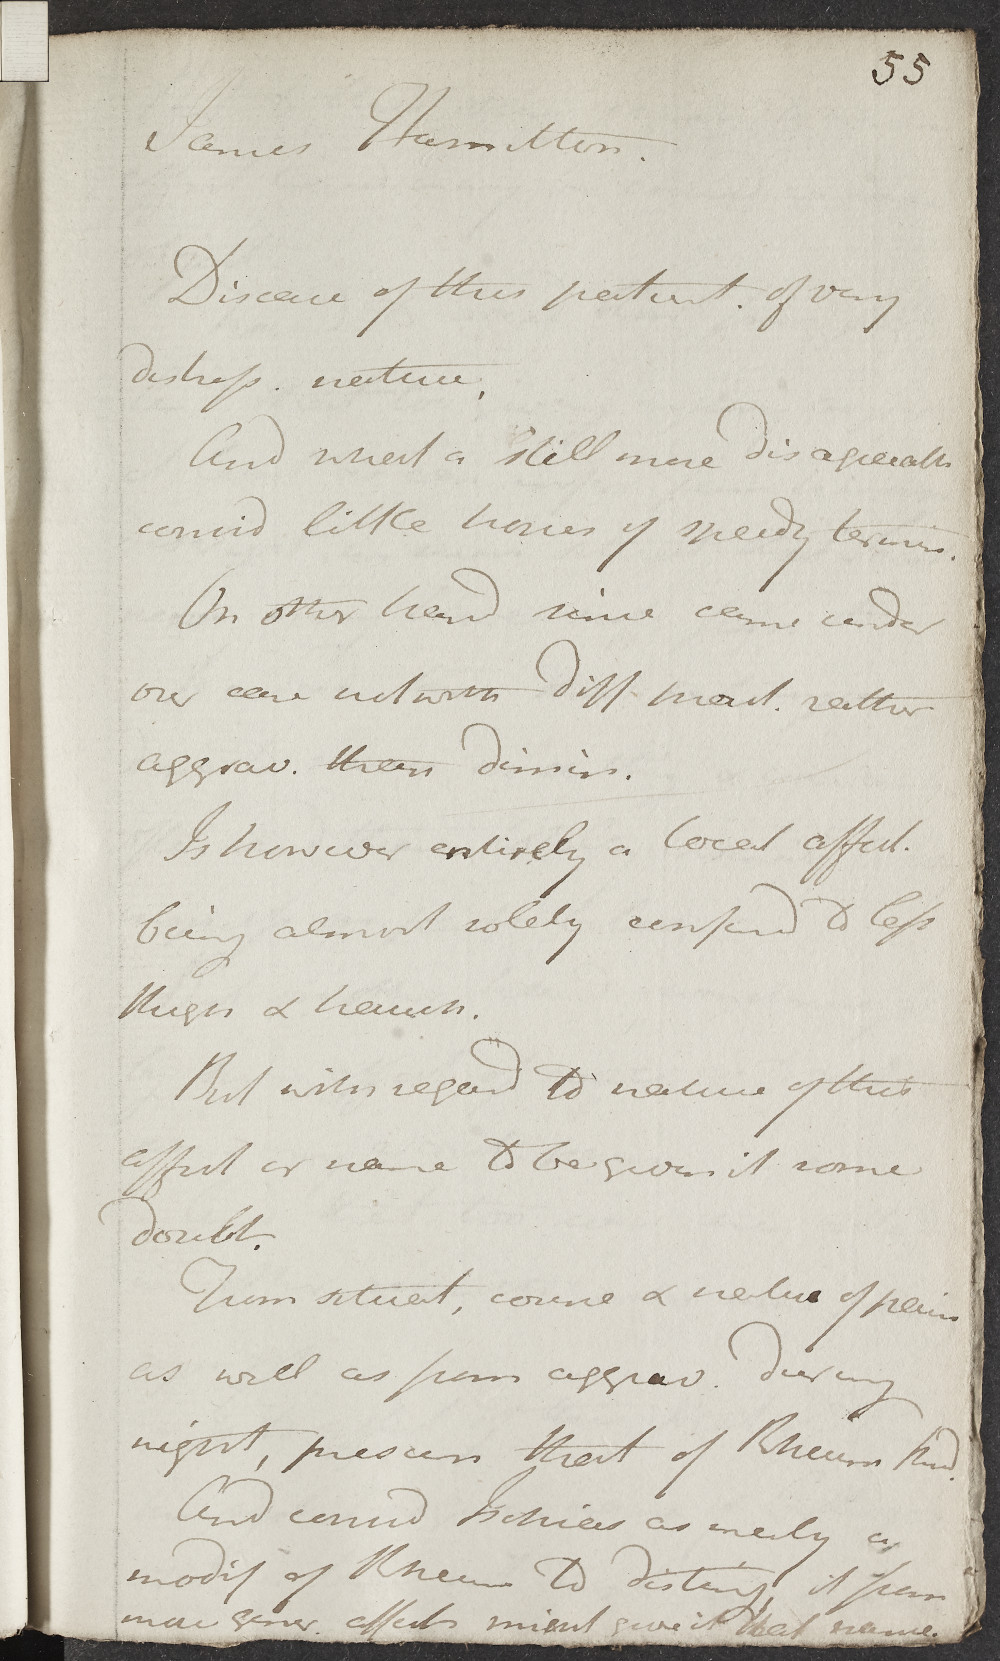 55
James Hamilton.
Disease of this patient. of very
distress. nature.
And what is still more disagreeable
consid little hopes of speedy termin.
On other hand since came under
our care notwith diff. pract. rather
aggrav. than dimin.
Is however entirely a local affect.
being almost solely confined to left
thigh & haunch.
But with regard to nature of this
affect or name to be given it some
doubt.
From situat, course & nature of pain
as well as from aggrav. during
night, presum that of Rheum kind.
And consid Ischias as merely a
modif of Rheum to disting it from
more gener. affects might give it that name.